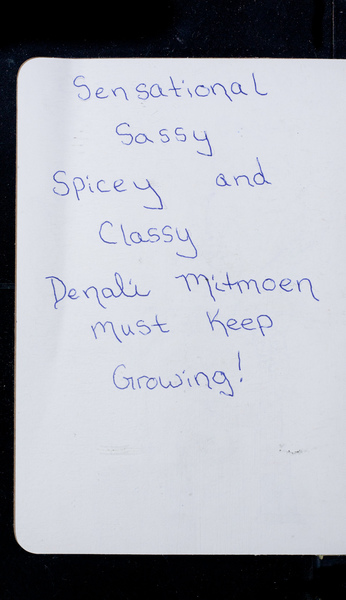 Sensational
Sassy
Spicey and
Classy
Denali Mitmoen
must Keep
Growing!